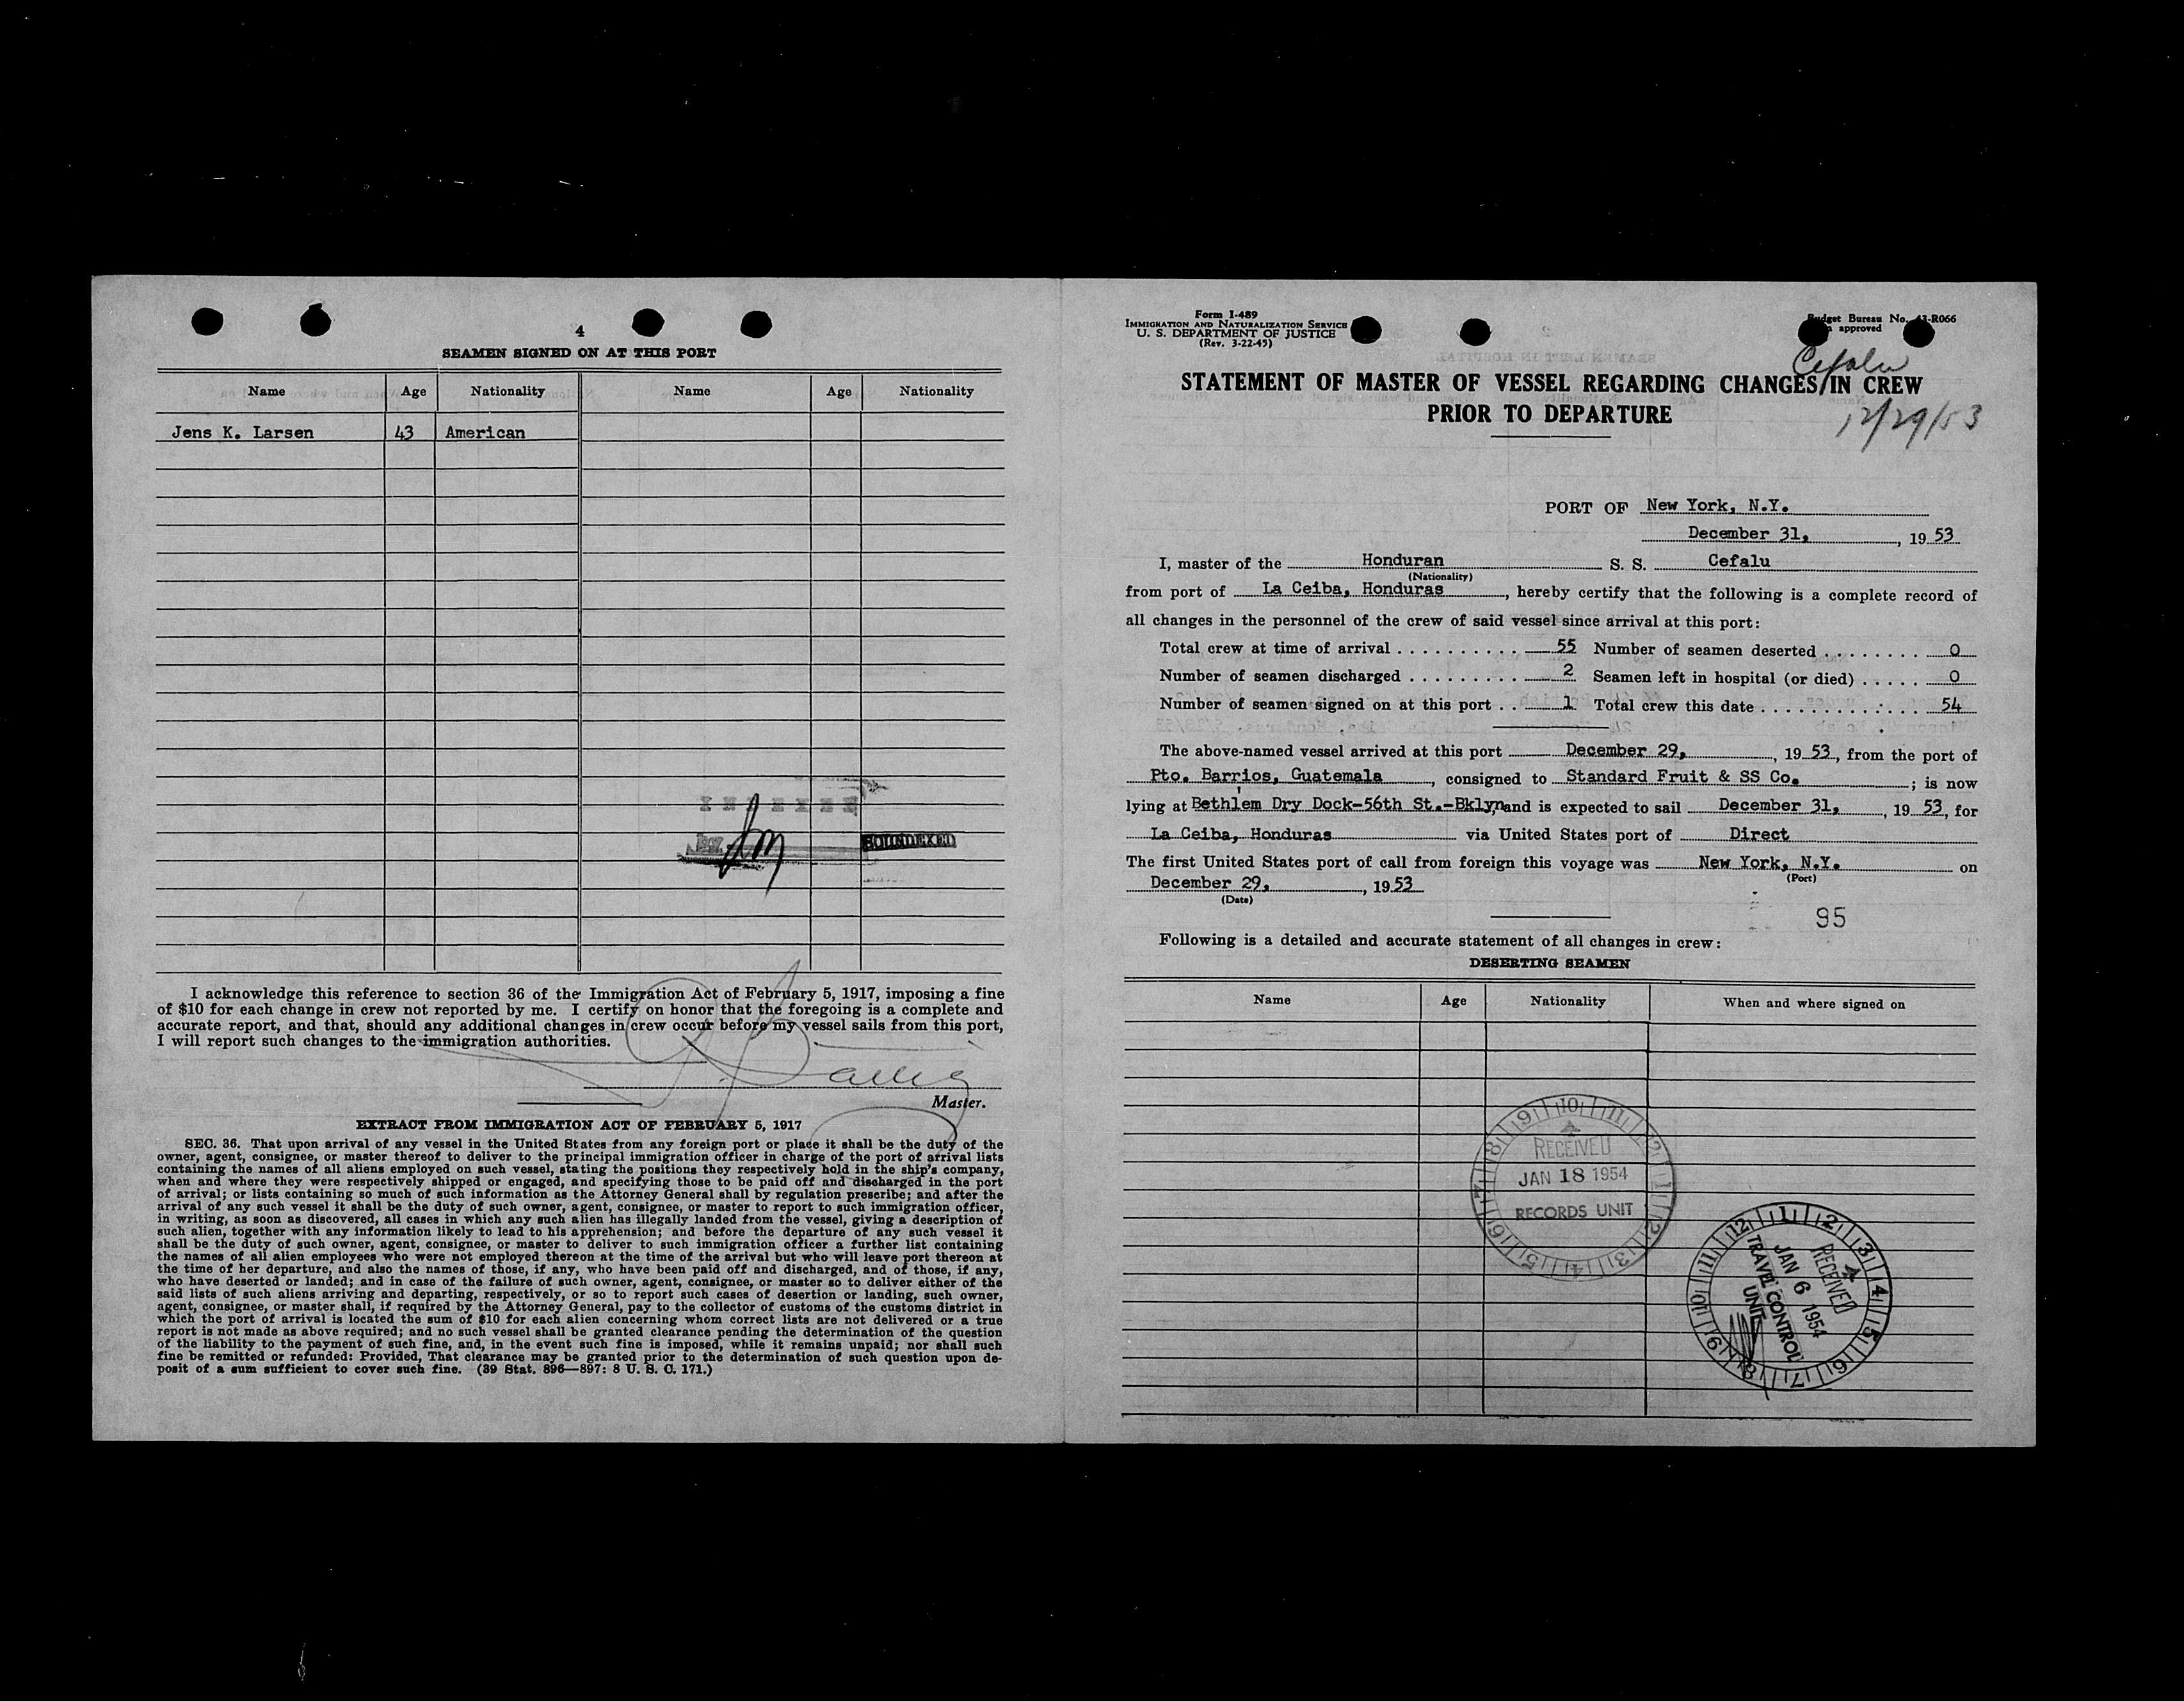 4
SEAMEN SIGNED ON AT THIS PORT
Name Age Nationality Name Age Nationality
Jens K. Larsen 43 American
SOUNDEXED
I acknowledge this reference to section 36 of the Immigration Act of February 5, 1917, imposing a fine
of $10 for each change in crew not reported by me. I certify on honor that the foregoing is a complete and
accurate report, and that, should any additional changes in crew occur before my vessel sails from this port,
I will report such changes to the immigration authorities.
Master.
EXTRACT FROM IMMIGRATION ACT OF FEBRUARY 5, 1917
SEC. 36. That upon arrival of any vessel in the United States from any foreign port or place it shall be the duty of the
owner, agent, consignee, or master thereof to deliver to the principal immigration officer in charge of the port of arrival lists
containing the names of all aliens employed on such vessel, stating the positions they respectively hold in the ship's company,
when and where they were respectively shipped or engaged, and specifying those to be paid off and discharged in the port
of arrival; or lists containing so much of such information as the Attorney General shall by regulation prescribe; and after the
arrival of any such vessel it shall be the duty of such owner, agent, consignee, or master to report to such immigration officer,
in writing, as soon as discovered, all cases in which any such alien has illegally landed from the vessel, giving a description of
such alien, together with any information likely to lead to his apprehension; and before the departure of any such vessel it
shall be the duty of such owner, agent, consignee, or master to deliver to such immigration officer a further list containing
the names of all alien employees who were not employed thereon at the time of the arrival but who will leave port thereon at
the time of her departure, and also the names of those, if any, who have been paid off and discharged, and of those, if any,
who have deserted or landed; and in case of the failure of such owner, agent, consignee, or master so to deliver either of the
said lists of such aliens arriving and departing, respectively, or so to report such cases of desertion or landing, such owner,
agent, consignee, or master shall, if required by the Attorney General, pay to the collector of customs of the customs district in
which the port of arrival is located the sum of $10 for each alien concerning whom correct lists are not delivered or a true
report is not made as above required; and no such vessel shall be granted clearance pending the determination of the question
of the liability to the payment of such fine, and, in the event such fine is imposed, while it remains unpaid; nor shall such
fine be remitted or refunded: Provided, That clearance may be granted prior to the determination of such question upon de-
posit of a sum sufficient to cover such fine. (39 Stat. 896—897: 8 U. S. C. 171.)
Form I-489
IMMIGRATION AND NATURALIZATION SERVICE
U. S. DEPARTMENT OF JUSTICE
(Rev. 3-22-45)
Budget Bureau No. 43-R066
approved
Cefalu
STATEMENT OF MASTER OF VESSEL REGARDING CHANGES IN CREW
PRIOR TO DEPARTURE
12/29/53
PORT OF New York, N.Y.
December 31, , 19 53
I, master of the Honduran S. S. Cefalu
(Nationality)
from port of La Ceiba, Honduras , hereby certify that the following is a complete record of
all changes in the personnel of the crew of said vessel since arrival at this port:
Total crew at time of arrival . . . . . . . . . . 55 Number of seamen deserted . . . . . . . . 0
Number of seamen discharged . . . . . . . . . 2 Seamen left in hospital (or died) . . . . . 0
Number of seamen signed on at this port . . 1 Total crew this date . . . . . . . . . . . . . 54
The above-named vessel arrived at this port December 29, , 19 53, from the port of
Pto. Barrios, Guatemala , consigned to Standard Fruit & SS Co. ; is now
lying at Bethl'em Dry Dock-56th St.-Bklyn and is expected to sail December 31, , 19 53, for
La Ceiba, Honduras via United States port of Direct
The first United States port of call from foreign this voyage was New York, N.Y. on
(Port)
December 29, , 19 53
(Date)
95
Following is a detailed and accurate statement of all changes in crew:
DESERTING SEAMEN
Name Age Nationality When and where signed on
RECEIVED
JAN 18 1954
RECORDS UNIT
RECEIVED
JAN 6 1954
TRAVEL CONTROL
UNIT